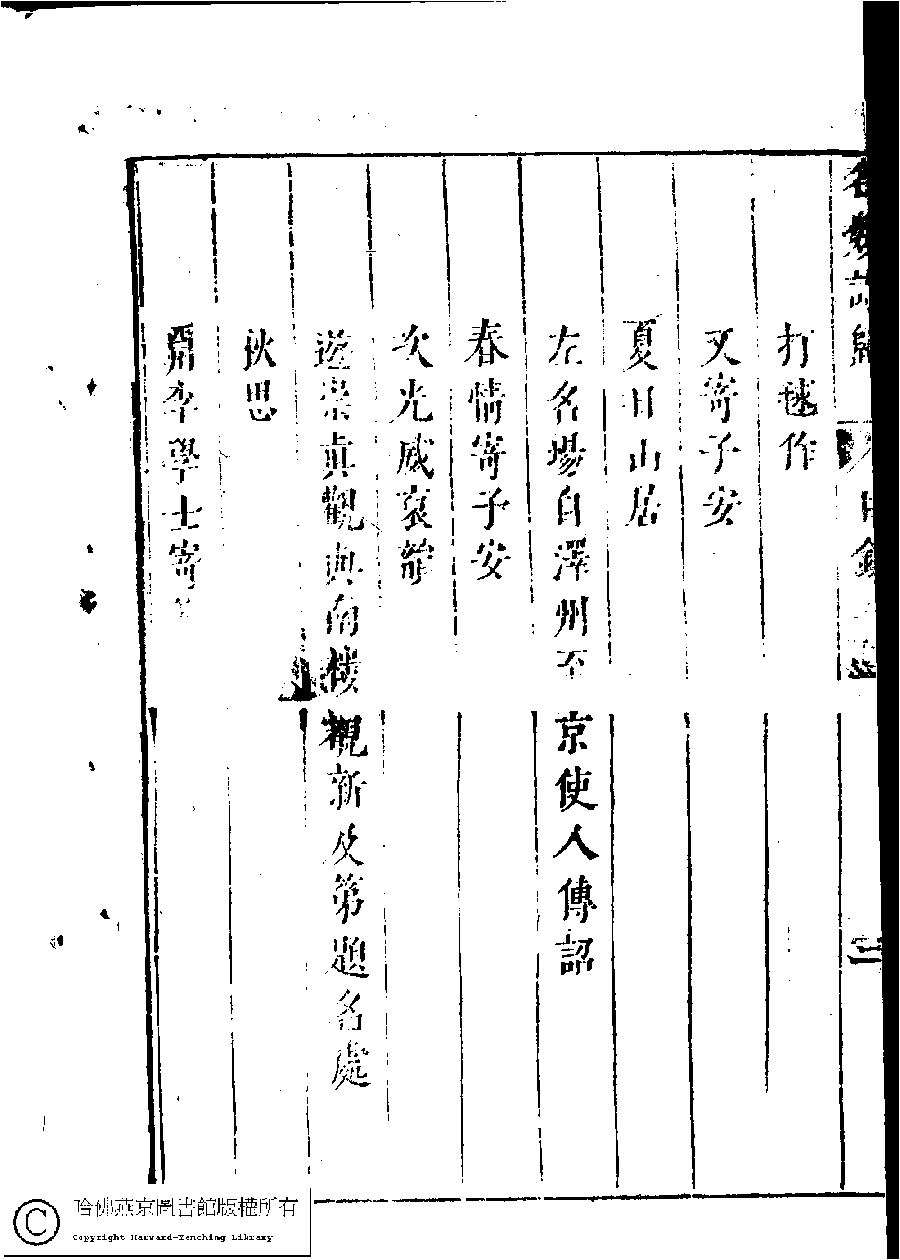 名媛詩歸
目錄
三
打毬作
又寄子安
夏日山居
左名場自澤州至京使人傳語
春情寄子安
次光威裒韻
遊崇真觀南樓覩新及第題名處
秋思
聞李學士寄
哈佛燕京圖書館版權所有
Copyright Harvard-Yenching Library